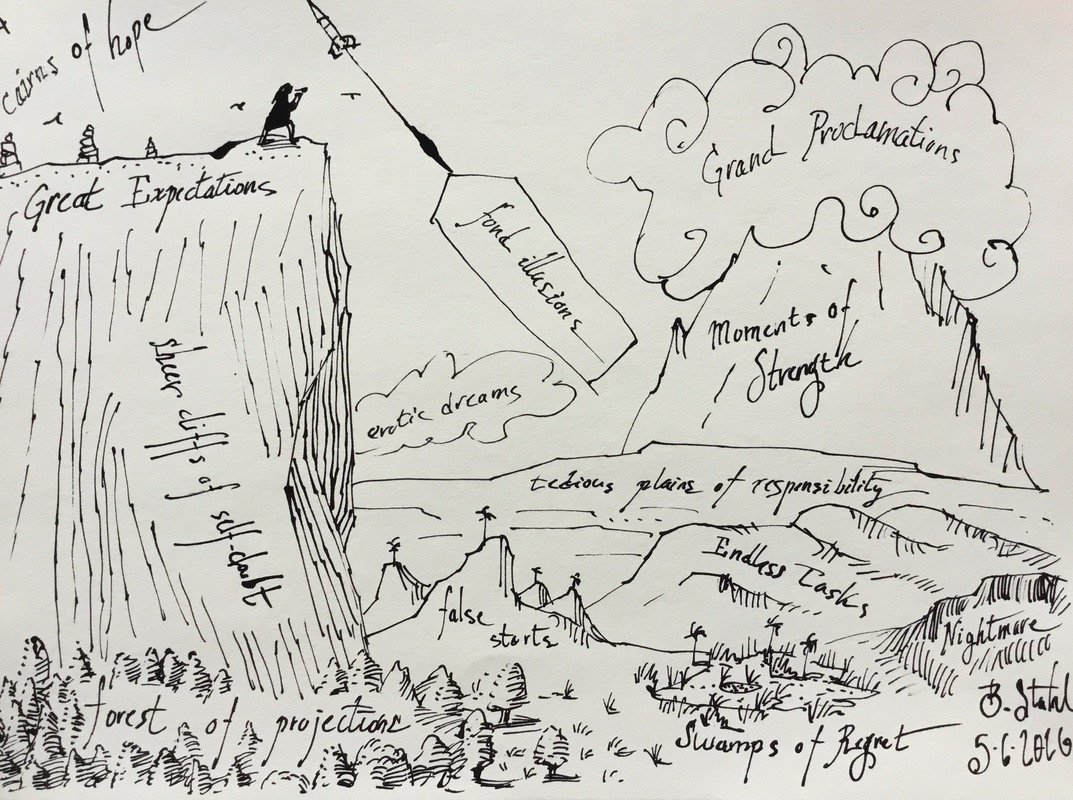 cairns of hope
Great Expectations
Grand Proclamations
fond illusions
Moments of
Strength
erotic dreams
sheer cliffs of self-doubt
tedious plains of responsibility
Endless Tasks
false
starts
Nightmare
forest of projections
Swamps of Regret
B.